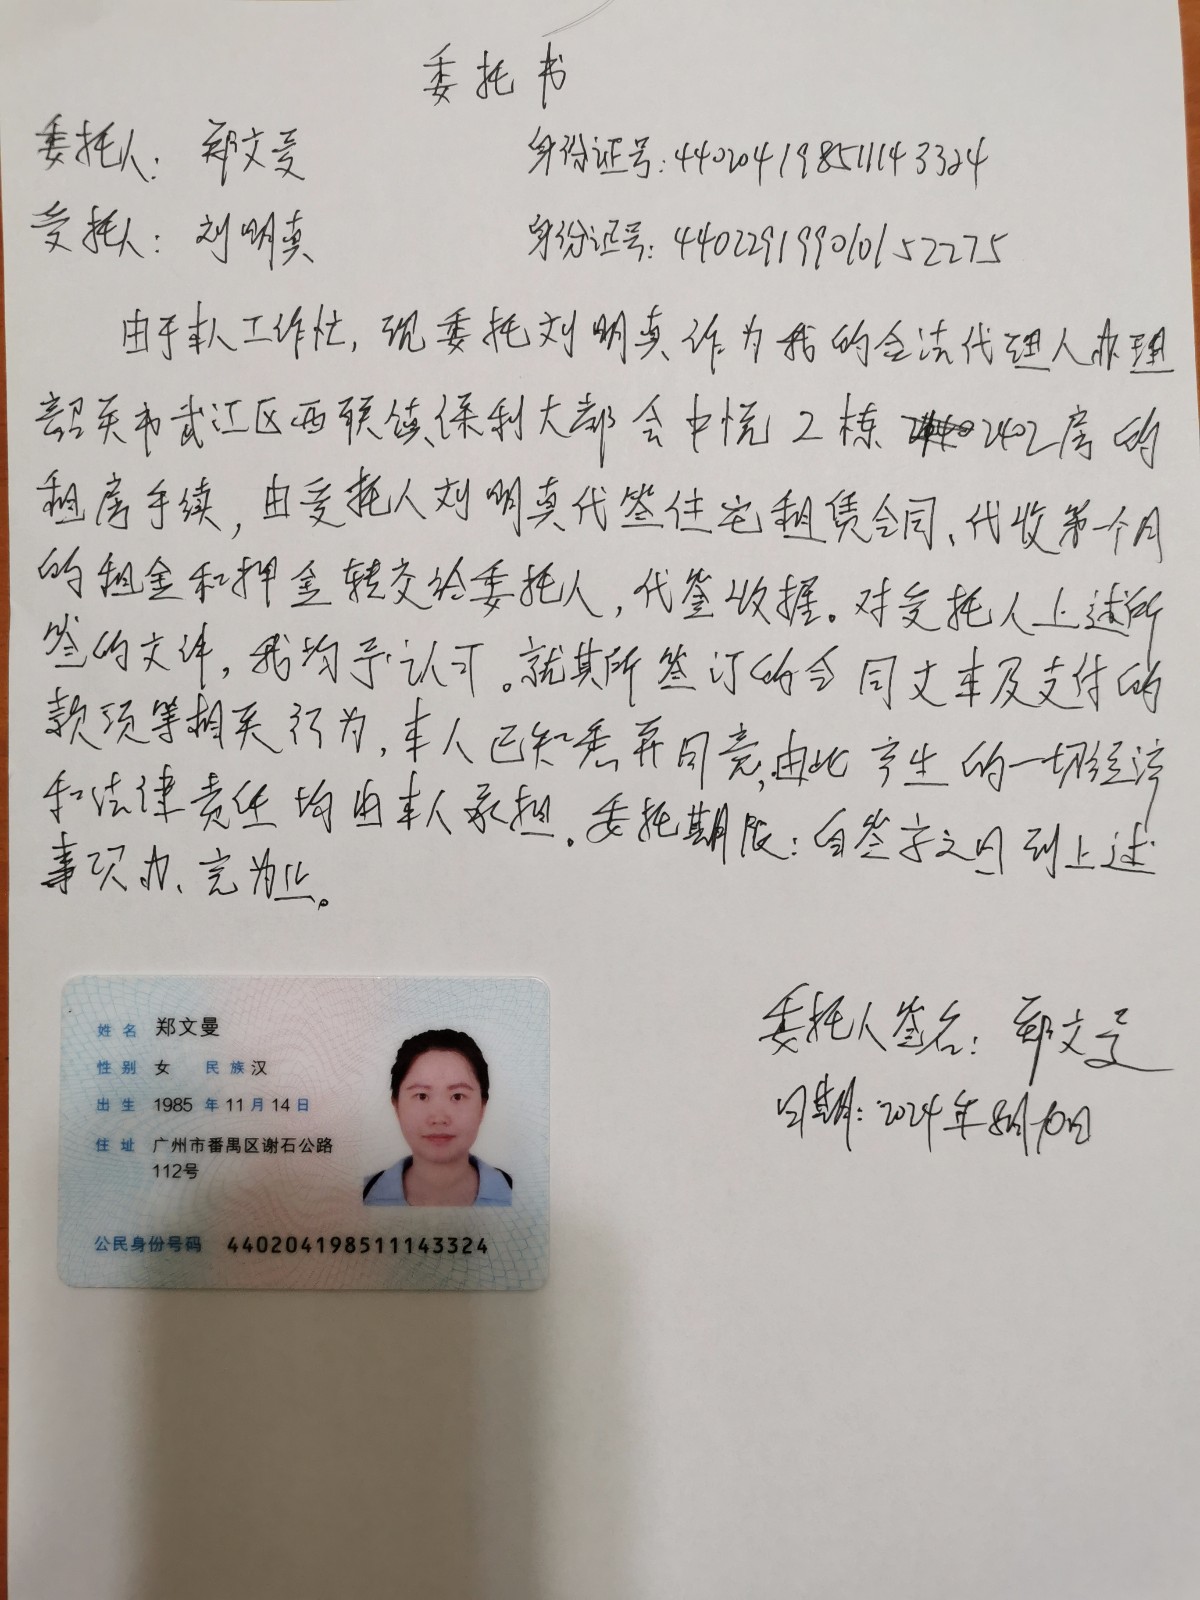 委托书
委托人: 郑文曼 身份证号:440204198511143324
受托人: 刘明真 身份证号:440229199010152275
由于本人工作忙, 现委托刘明真作为我的合法代理人办理
韶关市武江区西联镇保利大都会中悦2栋 2402房的
租房手续, 由受托人刘明真代签住宅租赁合同、代收第一个月
的租金和押金转交给委托人, 代签收据。对受托人上述所
签的文件, 我均予认可。就其所签订的合同文本及支付的
款项等相关行为, 本人已知悉并同意, 由此产生的一切经济
和法律责任均由本人承担。委托期限: 自签字之日到上述
事项办完为止。
委托人签名: 郑文曼
日期: 2024年8月10日
姓名 郑文曼
性别 女 民族 汉
出生 1985 年 11 月 14 日
住址 广州市番禺区谢石公路
112号
公民身份号码 440204198511143324